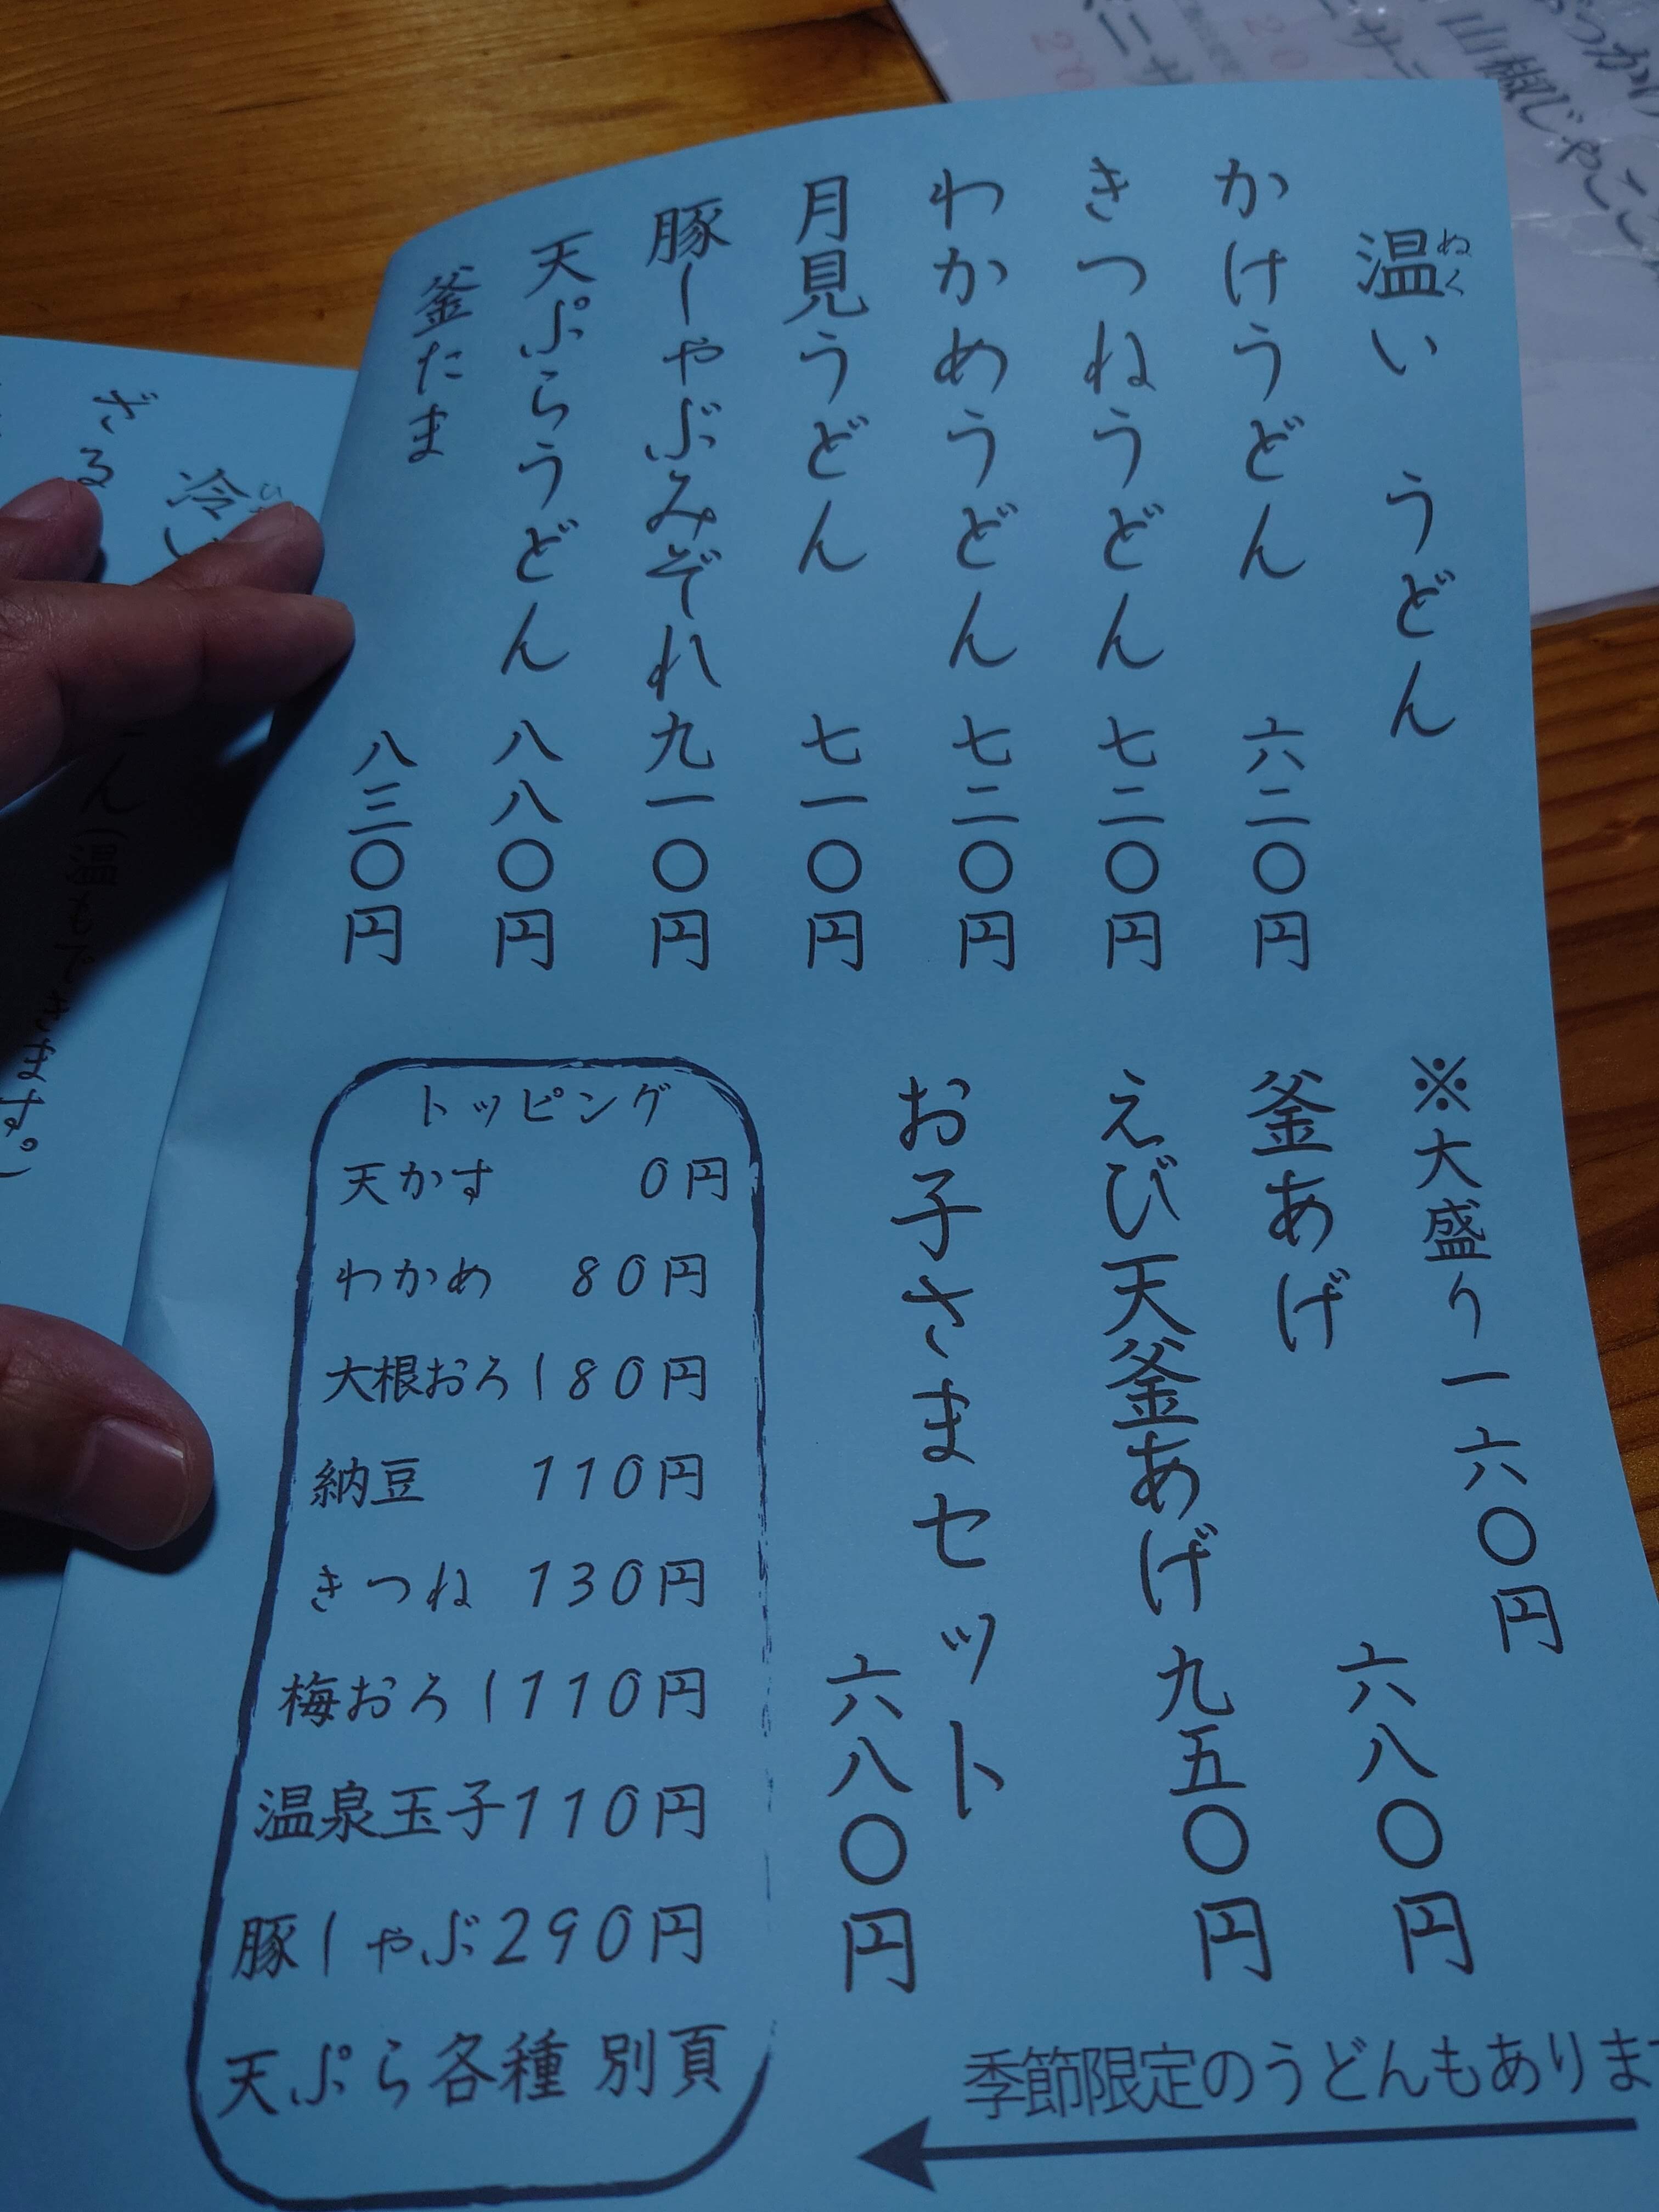 温い うどん
ぬく
かけうどん 六二〇円
きつねうどん 七二〇円
わかめうどん 七二〇円
月見うどん 七一〇円
豚しゃぶみぞれ 九一〇円
天ぷらうどん 八八〇円
釜たま 八三〇円
※大盛り一六〇円
釜あげ 六八〇円
えび天釜あげ 九五〇円
お子さまセット 六八〇円
トッピング
天かす 0円
わかめ 80円
大根おろし80円
納豆 110円
きつね 130円
梅おろし110円
温泉玉子110円
豚しゃぶ290円
天ぷら各種 別頁
季節限定のうどんもありま
山椒じゃこ
ざる